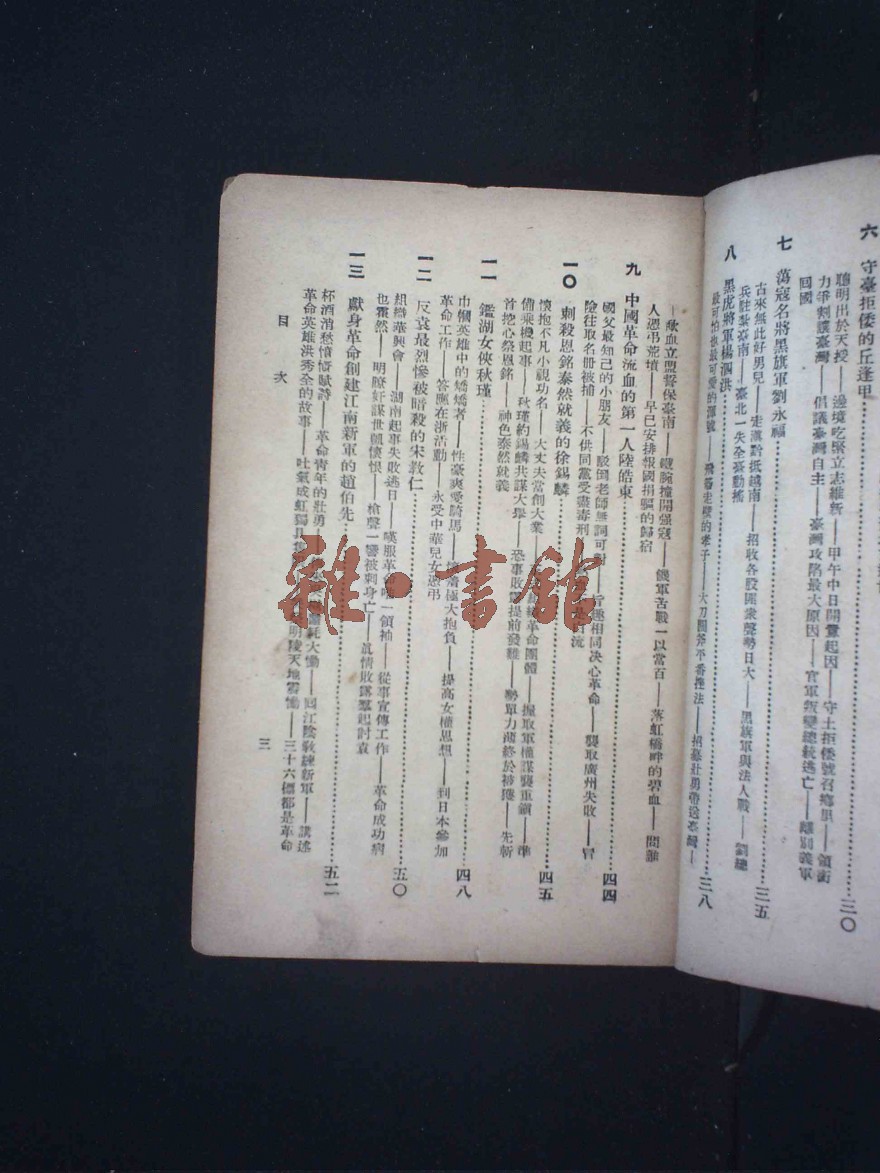 六　守臺拒倭的丘逢甲……三〇
聰明出於天授——邊境吃緊立志維新——甲午中日開釁起因——守土拒倭號召鄉里——領銜
力爭割讓臺灣——倡議臺灣自主——臺灣攻陷最大原因——官軍叛變總統逃亡——離別義軍
回國
七　蕩寇名將黑旗軍劉永福……三五
古來無此好男兒——走滇黔抵越南——招收各股團衆聲勢日大——黑旗軍與法人戰——劉總
兵駐紮臺南——臺北一失全臺動搖
八　黑虎將軍楊泗洪……三八
最可怕也最可愛的渾號——飛簷走壁的孝子——大刀闊斧不番挫法——招募壯勇帶送臺灣—
—歃血立盟誓保臺南——鐵腕撞開强寇——饑軍苦戰一以當百——落虹橋畔的碧血——問誰
人憑弔荒墳——早已安排報國捐軀的歸宿
九　中國革命流血的第一人陸皓東……四四
國父最知己的小朋友——駁倒老師無詞可對——旨趣相同决心革命——襲取廣州失敗——冒
險往取名册被捕——不供同黨受盡毒刑
一〇　刺殺恩銘泰然就義的徐錫麟……四五
懷抱不凡小視功名——大丈夫當創大業——革命團體——握取軍權謀襲重鎭——準
備乘機起事——秋瑾約錫麟共謀大舉——恐事敗露提前發難——勢單力薄終於被獲——先斬
首挖心祭恩銘——神色泰然就義
一一　鑑湖女俠秋瑾……四八
巾幗英雄中的矯矯者——性豪爽愛騎馬——懷着極大抱負——提高女權思想——到日本參加
革命工作——答應在浙活動——永受中華兒女憑弔
一二　反袁最烈慘被暗殺的宋敎仁……五〇
組織華興會——湖南起事失敗逃日——嘆服革命唯一領袖——從事宣傳工作——革命成功病
也霍然——明瞭奸謀世凱懷恨——槍聲一響被刺身亡——眞情敗露羣起討袁
一三　獻身革命創建江南新軍的趙伯先……五二
杯酒消愁憤慨賦詩——革命青年的壯勇——耗大慟——回江陰敎練新軍——講述
革命英雄洪秀全的故事——吐氣成虹——明陵天地震慟——三十六標都是革命
目　次
三
雜·書館